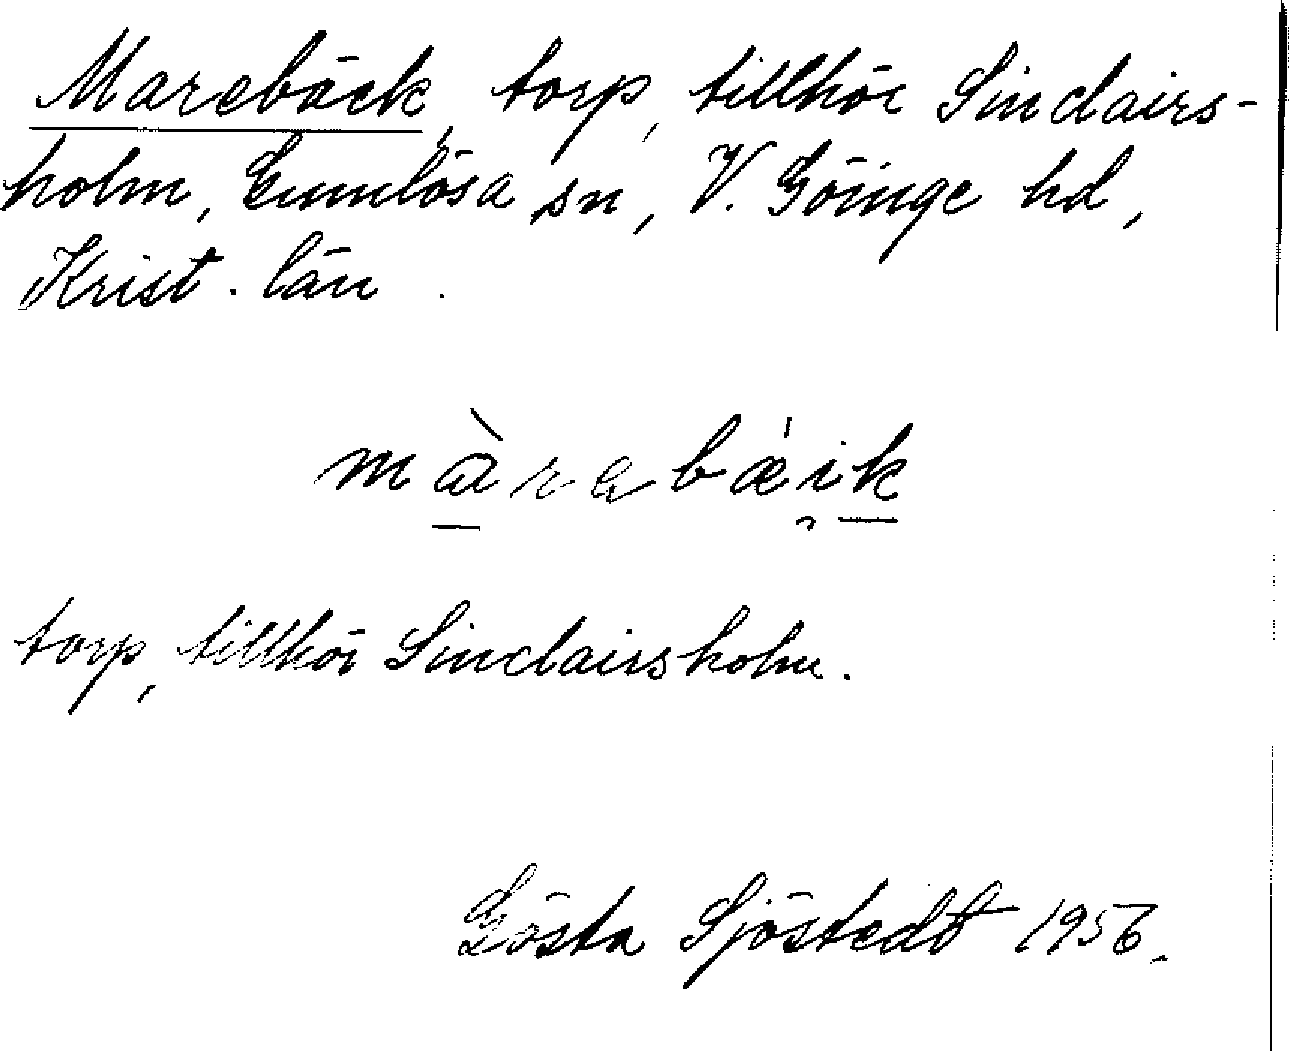 Marebäck, torp, tillhör Sinclairs-
holm, Gumlösa sn, V. Göinge hd,
Krist. län.
màrabæ̀i̯k
torp, tillhör Sinclairsholm.
Gösta Sjöstedt 1956.